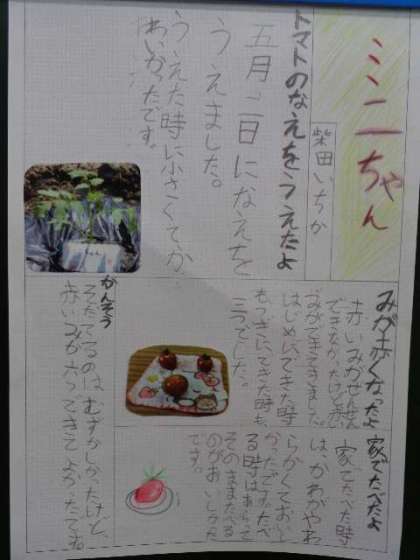 ミニーちゃん
柴田いちか
トマトのなえをうえたよ
五月二日になえを
うえました。
うえた時に小さくてか
わいかったです。
みが赤くなったよ
赤いみがぜんぜん
できなかったけど赤い
みができてきました。
はじめにできた時
もつぎにできた時も
三つでした。
家でたべたよ
家でたべた時
は、かわがやわ
らかくておいし
かったです。たべ
る時はあらって
そのままたべる
のがおいしかった
です。
かんそう
そだてるのはむずかしかったけど、
赤いみが六つできてよかったです。